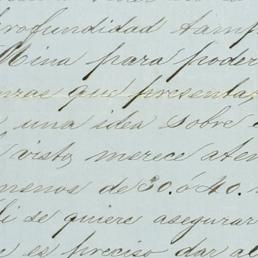 profundidad tamp
Mina para poder
zas que presenta,
una idea sobre
visto, merece aten
menos de 30. ó 40.
i se quiere asegurar
es preciso dar al